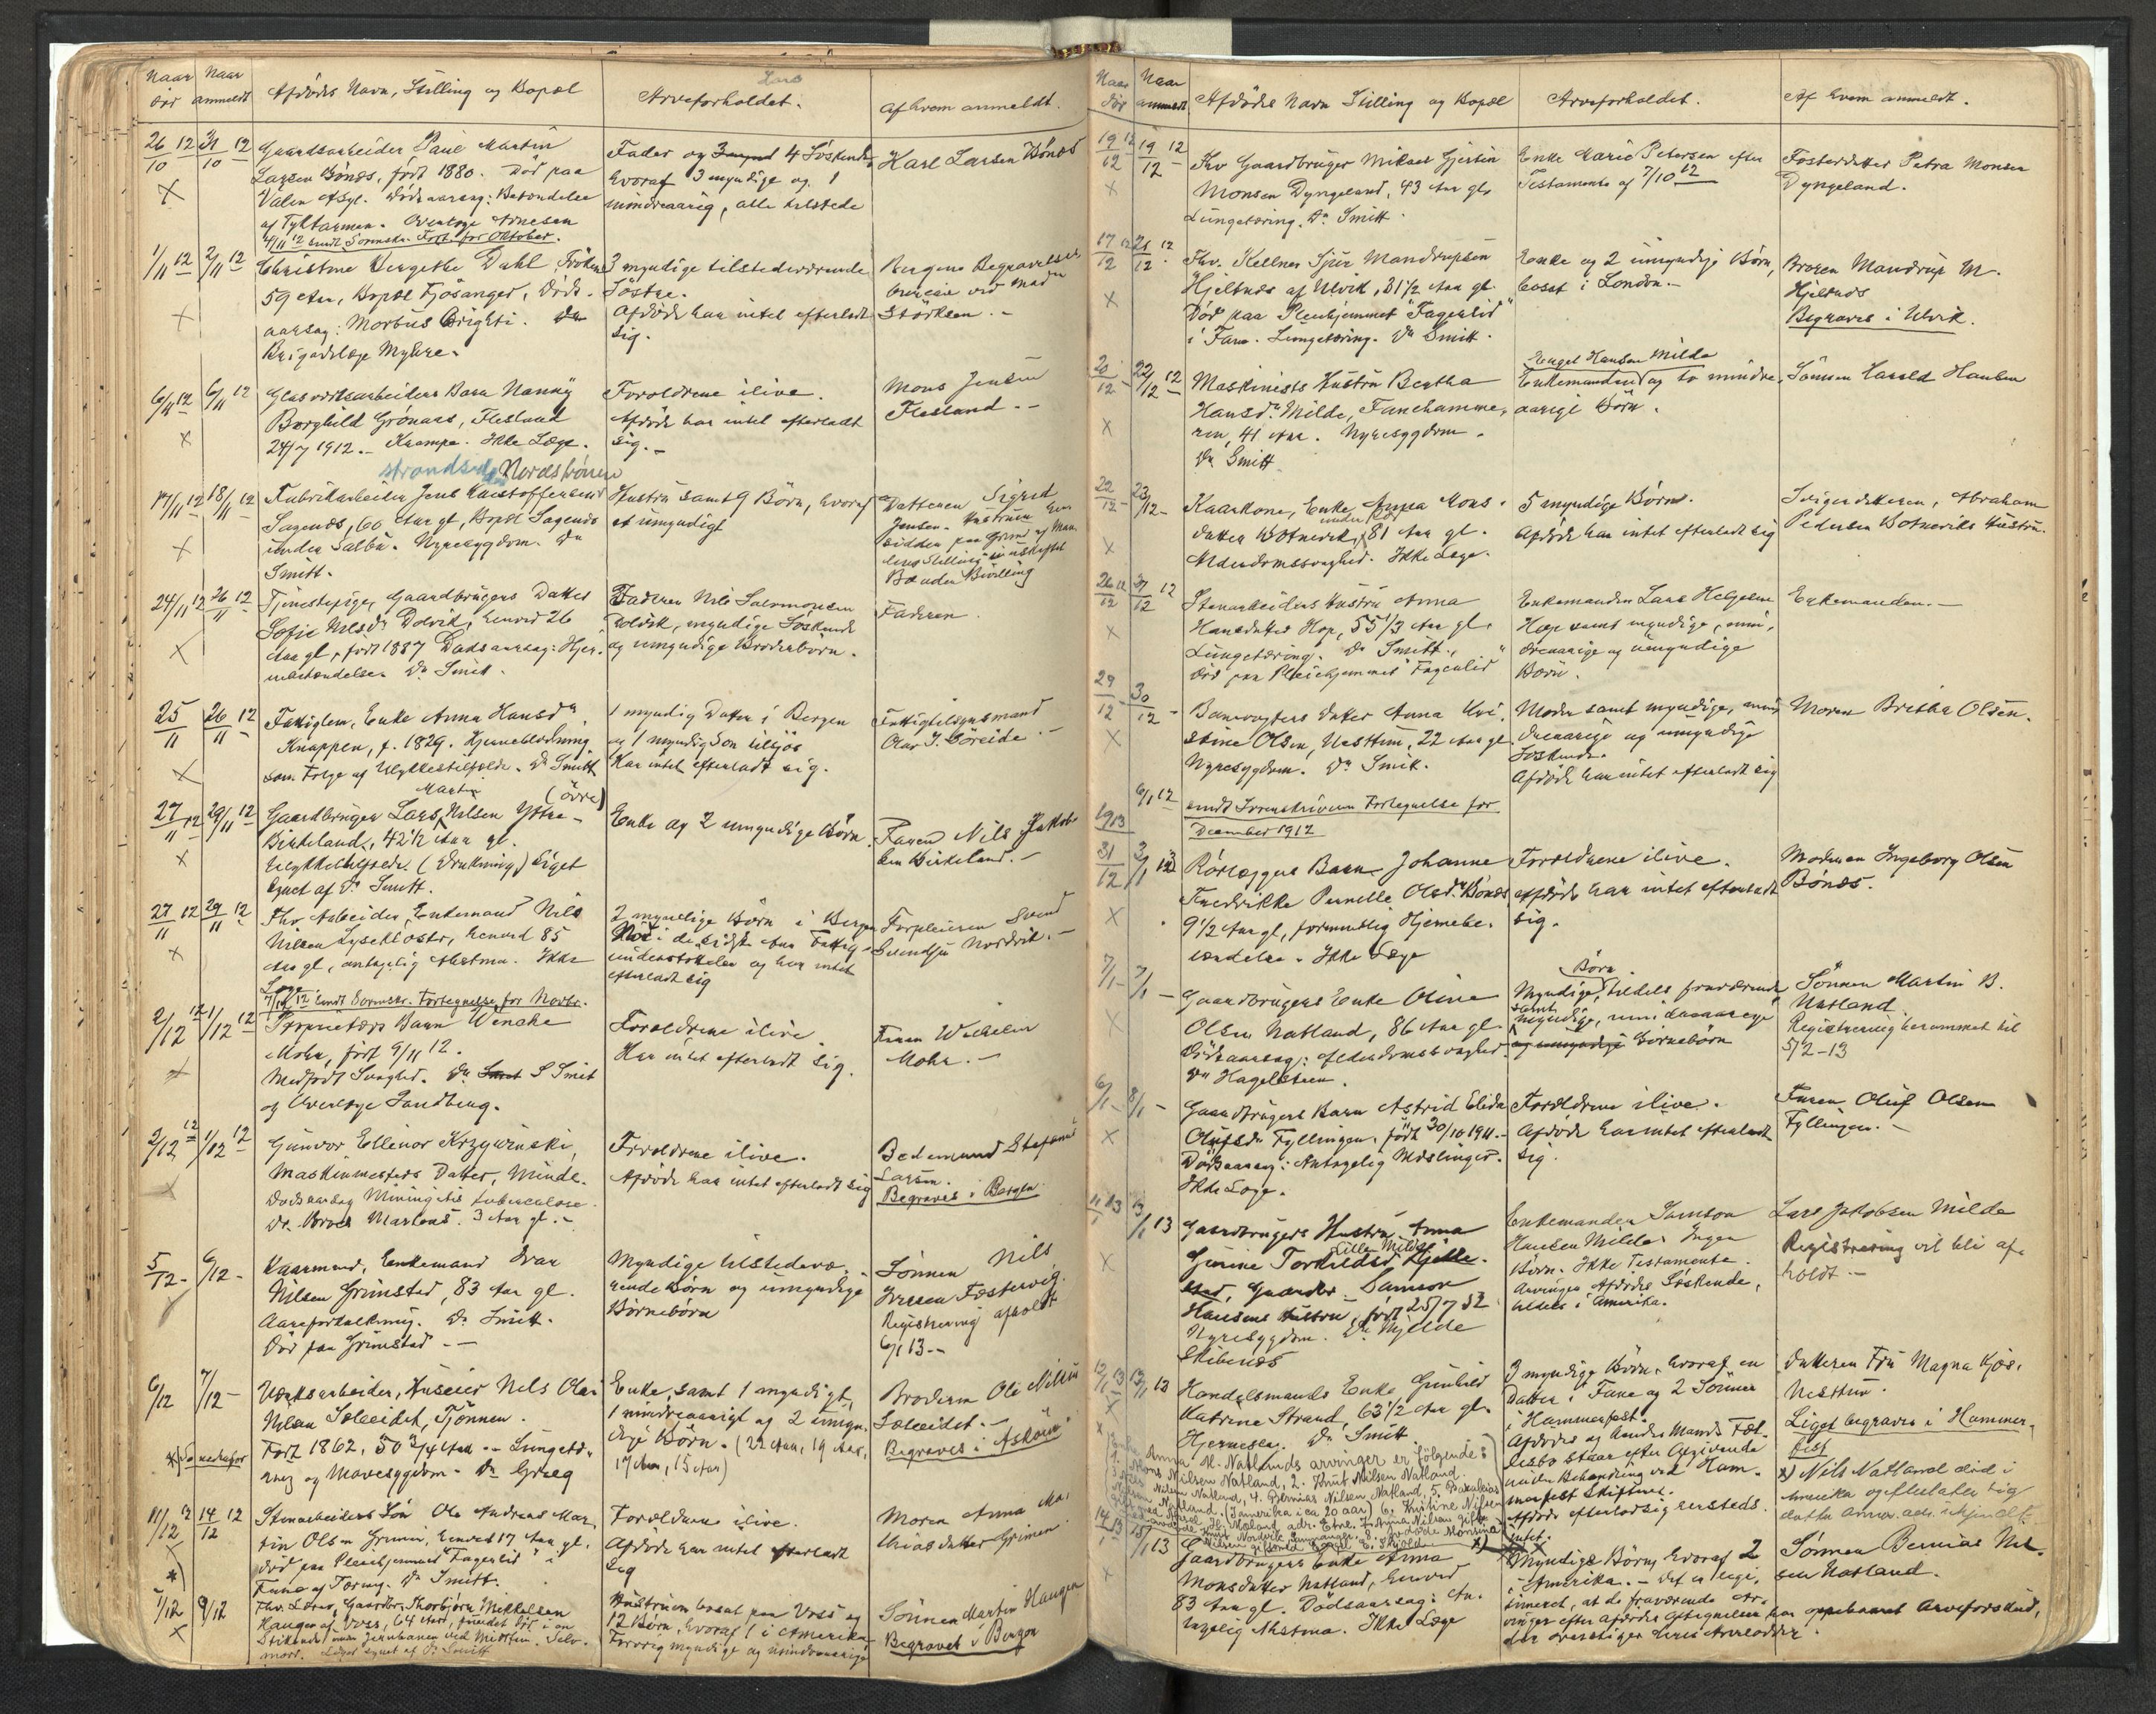 Naar død
Naar anmeldt
Afdødes Navn, Stilling og Bopæl
Arveforholdet.
Af hvem anmeldt.
26/10 12
31/10 12
Gaardsarbeider Paul Martin
Larsen Bønæs, født 1880. Død paa
Valen Asyl. Dødsaarsag: Betændelse
af Tyktarmen. Overlæge Arnesen
4/11 12 sendt Sorenskr. Fort. for Oktober.
Fader og 4 Søskende
hvoraf 3 myndige og 1
mindreaarig, alle tilstede
Karl Larsen Bønæs
1/11 12
2/11 12
Christine Bergethe Dahl, Frøken
59 Aar, Bopæl Fjøsanger, Døds-
aarsag: Morbus Brighti.
Brigadelæge Myhre.
3 myndige tilstedeværende
Søstre.
Afdøde har intet efterladt
sig.
Bergens Begravelses
bureau ved Mad
Størksen.-
6/11 12
6/11 12
Glasværksarbeiders Barn Nanny
Borghild Grønaas, Flesland
24/7 1912.- Krampe. Ikke Læge.
Forældrene ilive.
Afdøde har intet efterladt
sig.-
Mons Jensen
Flesland.-
17/11 12
18/11 12
Fabrikarbeider Jens Kristoffersen
Sagenæs, 60 Aar gl, Bopæl Sagenæs
under Sælbu. Nyresygdom. Dr
Smitt.
Hustru samt 9 Børn, hvoraf
et umyndigt
Datteren Sigrid
Jensen.
24/11 12
26/11 12
Tjenestepige, Gaardbrugers Datter
Sofie Nilsdr Dolvik, henved 26
Aar gl, født 1887 Dødsaarsag: Hjer-
nebetændelse. Dr Smit.
Faderen Nils Salomonsen
Dolvik, myndige Søskende
og umyndige Broderbørn.
Faderen.
25/11
26/11 12
Fattiglem, Enke Anna Hansdr
Knappen, f. 1829. Hjerneblødning
som Følge af Ulykkestilfælde. Dr Smitt
1 myndig Datter i Bergen
og 1 myndig Søn tilsjøs
Har intet efterladt sig.
Fattigtilsynsmand
Olav J. Søreide.-
27/11 12
29/11 12
Martin
(øvre)
Gaardbruger Lars Nilsen Ytre-
Birkeland, 42 1/2 Aar gl.
Ulykkestilfælde (Drukning) Liget
synet af Dr Smitt.
Enke og 2 umyndige Børn.
Faren Nils Jakob-
sen Birkeland.-
27/11 12
29/11 12
Fhv Arbeider, Enkemand Nils
Nilsen Lysekloster, henved 85
Aar gl, antagelig Asthma. Ikke
Læge
7/12 12 Sendt Sorenskr. Fortegnelse for Novbr.
2 myndige Børn i Bergen
understøttelse og har intet
efterladt sig
Forpleieren Svend
Svendsen Nordvik.-
2/12 12
1/12 12
Proprietærs Barn Wenche
Mohr, født 9/11 12.
Medfødt Svaghed. Dr S Smit
og Overlæge Sandberg.
Forældrene ilive.
Har intet efterladt sig.
Faren Wilhelm
Mohr.-
2/12 12
1/12 12
Gunvor Ellinor Krzywinski,
Maskinmesters Datter, Minde.
Dødsaarsag Miningitis tuberculose.
Dr. Martens. 3 Aar gl.-
Forældrene ilive.
Afdøde har intet efterladt sig
Bedemand Stefanus
Larsen.
Begraves i Bergen
5/12 -
6/12 -
Kaarmand, Enkemand Ivar
Nilsen Grimstad, 83 Aar gl.
Aareforkalkning. Dr. Smitt.
Død paa Grimstad.-
Myndige tilstedevæ-
rende Børn og umyndige
Børnebørn
Sønnen Nils
Iversen Fæstervig.
Registrering afholdt
6/1 13.-
6/12
7/12 -
Værksarbeider, Huseier Nels Olai
Nilsen Sæleidet, Tjønnen.
Født 1862, 50 3/4 Aar.- Lungetæ-
ring og Mavesygdom. Dr Grieg
Enke, samt 1 myndigt,
1 mindreaarigt og 2 umyn-
dige Børn. (22 Aar, 19 Aar,
17 Aar, 15 Aar)
Broderen Ole Nilsen
Sæleidet.-
Begraves i Askøen
11/12 12
14/12 12
Stenarbeiders Søn Ole Andreas Mar-
tin Olsen Grimen, henved 17 Aar gl.
død paa Pleiehjemmet "Fagerlid" i
Fana af Tæring. Dr Smitt.
Forældrene ilive.
Afdøde har intet efterladt
sig
Moren Anna Ma-
thiasdatter Grimen
7/12
9/12
Fhv. Lærer, Gaardbr. Thorbjørn Mikkelsen
Haugen af Voss, 64 Aar, fundet død i en
nær Jernbanen ved Midttun. Selv-
mord. Liget synet af Dr Smitt
Hustruen bosat paa Voss og
12 Børn, hvoraf 1 i Amerika
Forøvrig myndige og mindreaarige
Sønnen Martin Haugen
Begravet i Bergen
Naar død
Naar anmeldt
Afdødes Navn Stilling og Bopæl
Arveforholdet.
Af hvem anmeldt.
19/12 12
19/12 12
Fhv Gaardbruger Mikael Gjertin
Monsen Dyngeland, 43 Aar gl.
Lungetæring. Dr Smitt.
Enke Marie Petersen efter
Testamente af 7/10 12
Fosterdatter Petra Monsen
Dyngeland.
17/12 12
21/12 12
Fhv. Kellner Sjur Mandrupsen
Hjeltnæs af Ulvik, 31 1/2 Aar gl.
Død paa Pleiehjemmet "Fagerlid"
i Fana. Lungetæring. Dr Smitt.
Enke og 2 umyndige Børn,
bosat i London.-
Broren Mandrup M.
Hjeltnæs
Begraves i Ulvik.
20/12 -
22/12 12
Maskinists Hustru Bertha
Hansdr Milde, Fanehamme-
ren, 41 Aar. Nyresygdom.
Dr Smitt.
Engel Hansen Milde
Enkemanden og to mindre-
aarige Børn.
Sønnen Harald Hansen
22/12 -
23/12 -
Kaarkone, Enke Anna Mons-
datter Botnevik, 81 Aar gl.
Alderdomssvaghed. Ikke Læge.
5 myndige Børn.
Afdøde har intet efterladt sig
Svigerdatteren, Abraham
Pedersen Botneviks Hustru.
26/12 12
27/12 12
Stenarbeiders Hustru Anna
Hansdatter Hop, 55 1/3 Aar gl.
Lungetæring. Dr Smitt.
død paa Pleiehjemmet "Fagerlid"
Enkemanden Lars Helgesen
Hop samt myndige, min-
dreaarige og umyndige
Børn.
Enkemanden.-
29/12 -
30/12 -
Banevogters datter Anna Kri-
stine Olsen, Nesttun, 22 Aar gl
Nyresygdom. Dr Smitt.
Moder samt myndige, min-
dreaarige og umyndige
Søskende.
Afdøde har intet efterladt sig
Moren Britha Olsen.
6/1 12
sendt Sorenskriveren Fortegnelse for
December 1912
1913
31/12
3/1 13
Rørlæggers Barn Johanne
Fredrikke Pernelle Olsdr Bønæs
9 1/2 Aar gl, formentlig Hjernebe-
tændelse. Ikke Læge
Forældrene ilive.
Afdøde har intet efterladt
sig.
Moderen Ingeborg Olsen
Bønæs.
7/1 -
7/1 -
Gaardbrugers Enke Oline
Olsen Natland, 86 Aar gl.
Dødsaarsag: Alderdomssvaghed.
Dr Hagelsteen.
Børn
Myndige, tildels fraværende
samt
myndige, mindreaarige
og umyndige Børnebørn
Sønnen Martin B.
Natland
Registrering berammet til
5/2-13
6/1 -
8/1 -
Gaardbrugers Barn Astrid Elida
Olufsdr Fyllingen, født 30/10 1911.-
Dødsaarsag: Antagelig Meslinger.
Ikke Læge.
Forældrene ilive.
Afdøde har intet efterladt
sig.
Faren Oluf Olsen
Fyllingen.-
11/1 13
13/1 13
Gaardbrugers Hustru Anna
Lille Milde
Gurine Torkildsd
Samson
Hansens Hustru, født 25/7 52
Nyresygdom. Dr Mjelde
Skibenæs
Enkemanden Samson
Hansen Milde. Ingen
Børn. Ikke Testamente.
Arvinger Afdødes Søskende,
tildels i Amerika.
Lars Jakobsen Milde
Registrering vil bli af-
holdt.-
12/1 13
13/1 13
Handelsmands Enke Gunhild
Katrine Strand, 63 1/2 Aar gl.
Hjerneslag. Dr Smitt
3 myndige Børn, hvoraf en
Datter i Fane og 2 Sønner
i Hammerfest.
Afdødes og hendes Mands Fæl-
lesbo staar efter Opgivende
under Behandling ved Ham-
merfest Skifteret.
Afdøde efterlod sig hersteds
intet.
Datteren Fru Magna Kjøs,
Nesttun.
Liget begraves i Hammer-
fest
Anna M. Natlands arvinger er følgende:
1. Mons Nilsen Natland, 2. Knut Nilsen Natland
Nilsen Natland, 4. Bernias Nilsen Natland, 5.
Natland. (I amerika i ca 20 aar) 6. Kristine Nilsen
x) Nils Natland død i
Amerika og efterlater sig
datter Anna adr. ukjendt.
14/1 13
15/1 13
Gaardbrugers Enke Anna
Monsdatter Natland, henved
83 Aar gl. Dødsaarsag: An-
tagelig Asthma. Ikke Læge
Myndige Børn, hvoraf 2
i Amerika.- Det er legi-
timeret, at de fraværende Ar-
vinger efter Afdødes Opskrift har oppebaaret Arveforskud,
der overstiger deres Arvelodder.
Sønnen Bernias Nil-
sen Natland.